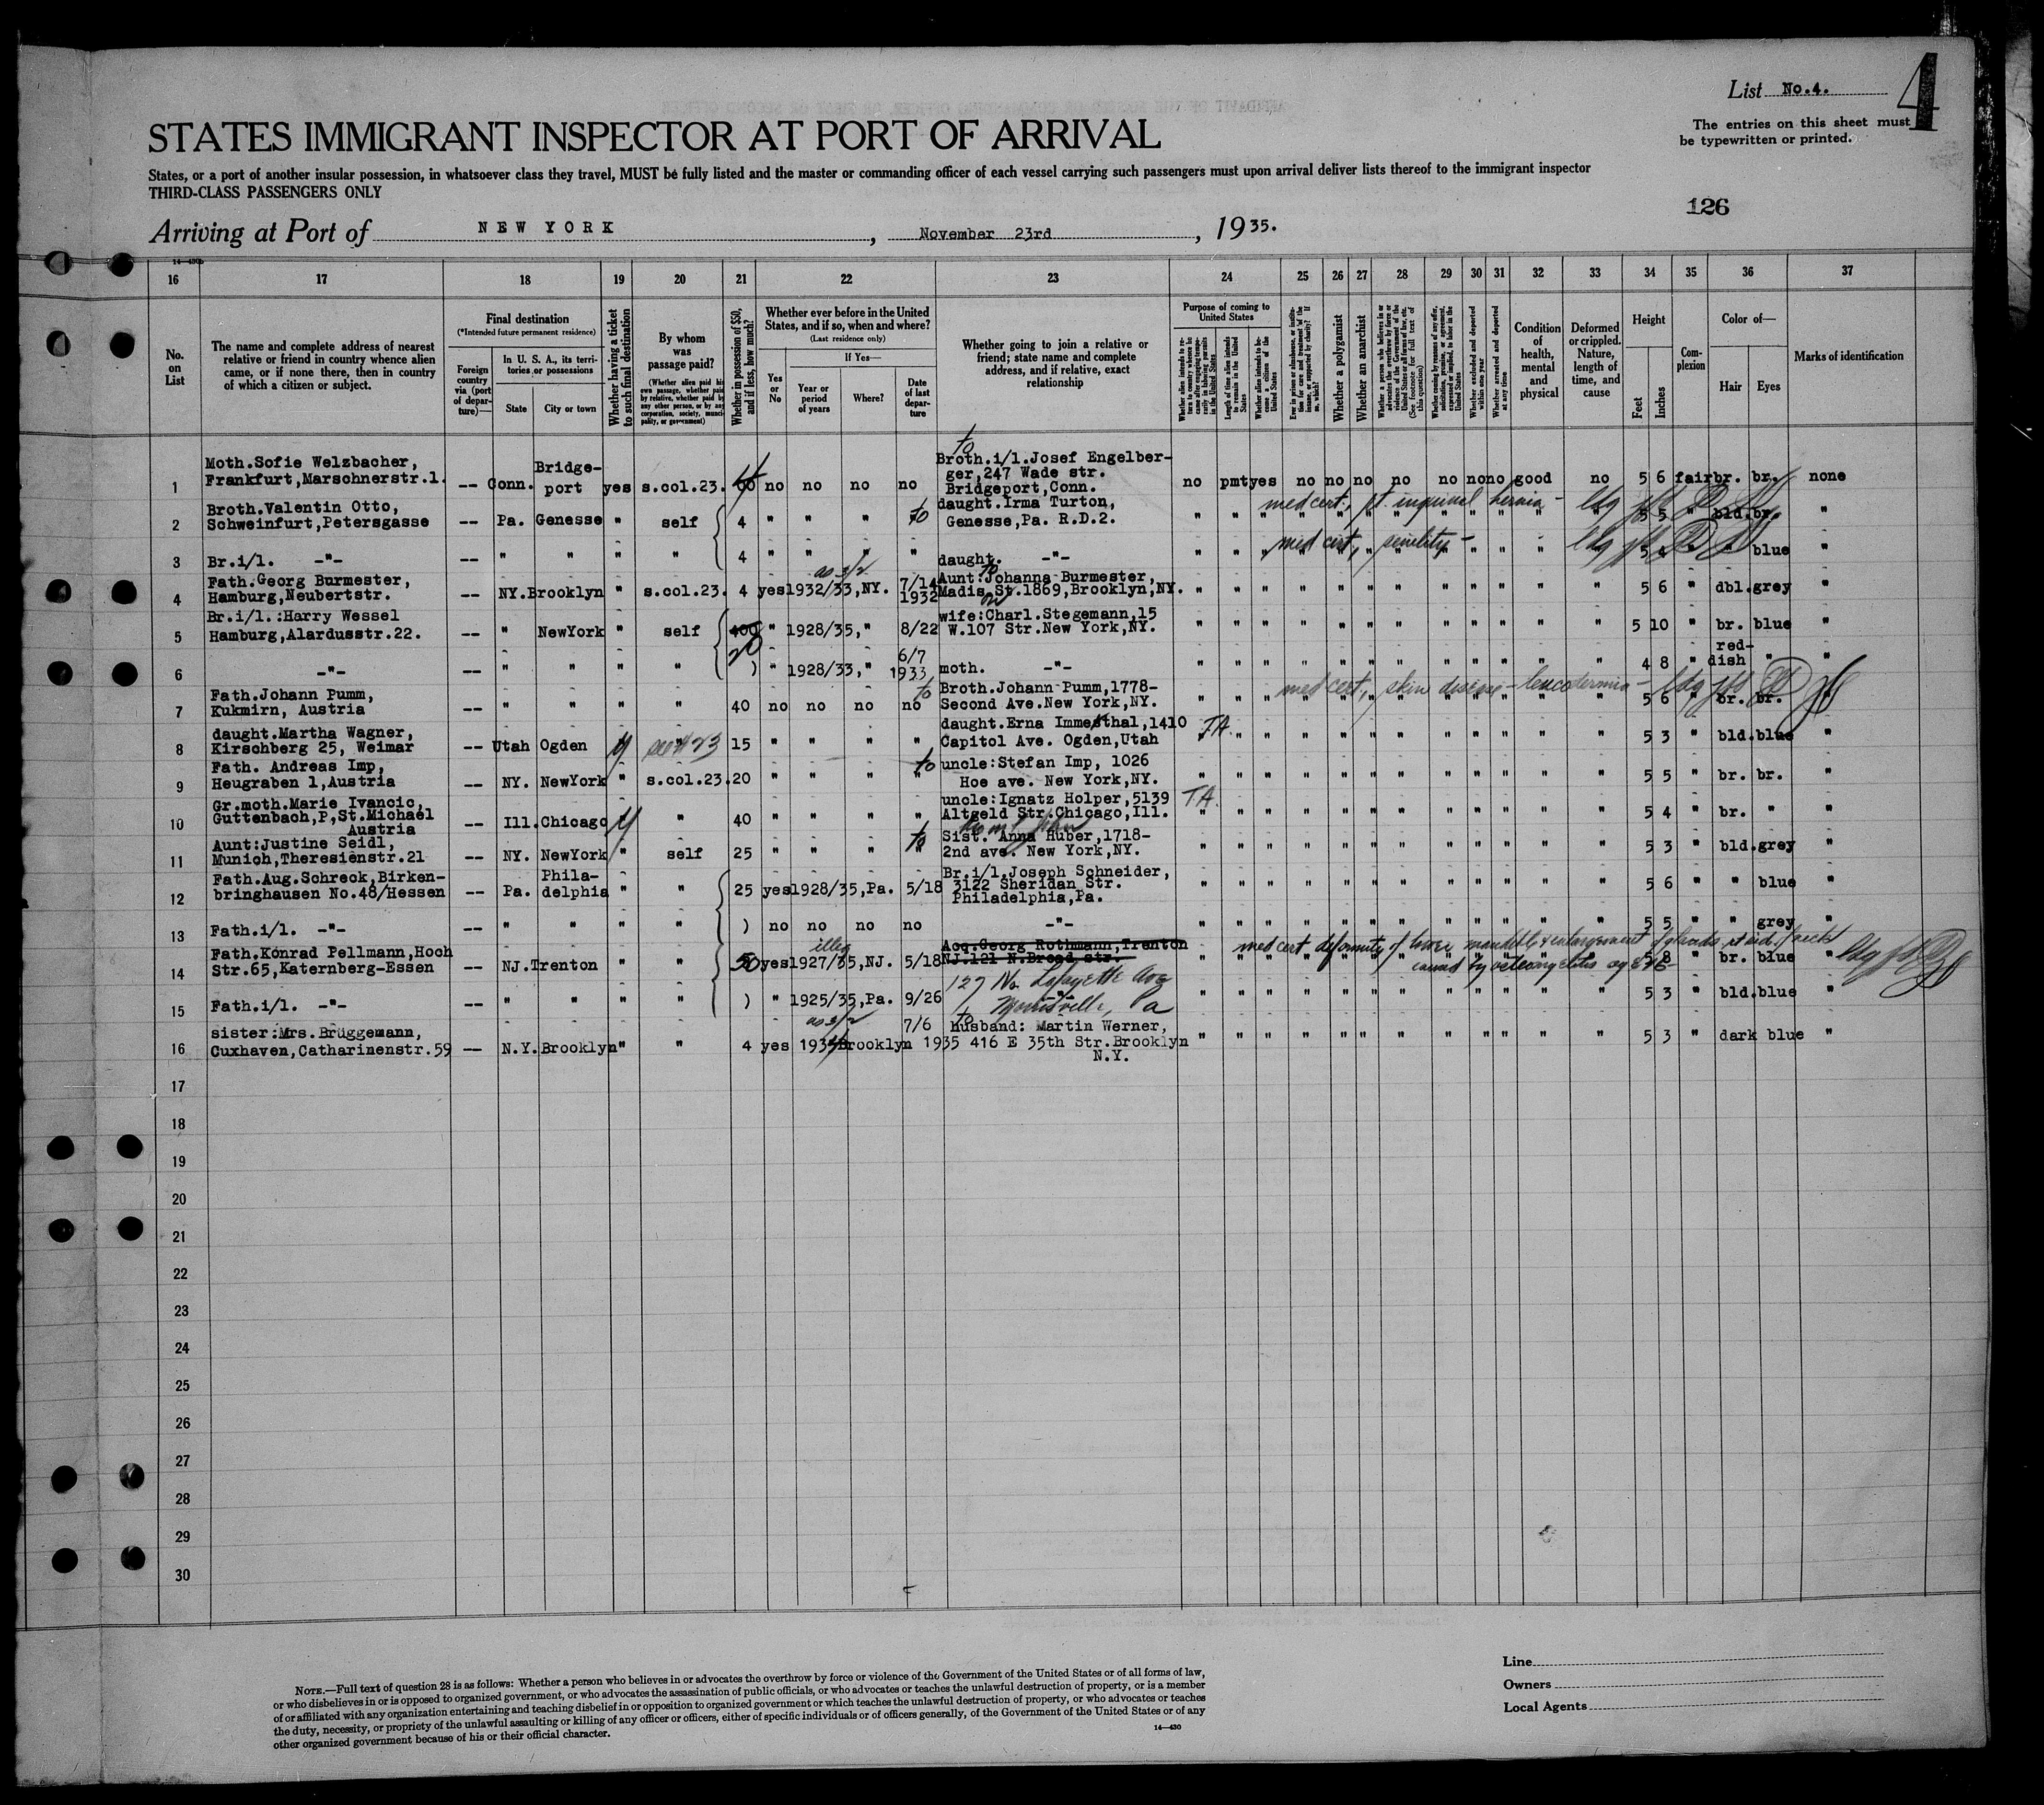 List No.4.
4
The entries on this sheet must
be typewritten or printed.
STATES IMMIGRANT INSPECTOR AT PORT OF ARRIVAL
States, or a port of another insular possession, in whatsoever class they travel, MUST be fully listed and the master or commanding officer of each vessel carrying such passengers must upon arrival deliver lists thereof to the immigrant inspector
THIRD-CLASS PASSENGERS ONLY
126
Arriving at Port of NEW YORK, November 23rd, 1935.
16 17 18 19 20 21 22 23 24 25 26 27 28 29 30 31 32 33 34 35 36 37
No. on List
The name and complete address of nearest relative or friend in country whence alien came, or if none there, then in country of which a citizen or subject.
Final destination
(*Intended future permanent residence)
Foreign country via (port of departure)—
In U. S. A., its territories or possessions
State
City or town
Whether having a ticket to such final destination
By whom was passage paid?
(Whether alien paid his own passage, whether paid by relative, whether paid by any other person, or by any corporation, society, municipality, or government)
Whether in possession of $50, and if less, how much?
Whether ever before in the United States, and if so, when and where?
(Last residence only)
Yes or No
If Yes—
Year or period of years
Where?
Date of last departure
Whether going to join a relative or friend; state name and complete address, and if relative, exact relationship
Purpose of coming to United States
Length of time alien intends to remain in the United States
Whether a polygamist
Whether an anarchist
(See footnote for full text of this question)
Whether excluded and deported within one year
Whether arrested and deported at any time
Condition of health, mental and physical
Deformed or crippled. Nature, length of time, and cause
Height
Feet
Inches
Complexion
Color of—
Hair
Eyes
Marks of identification
1 Moth.Sofie Welzbacher, Frankfurt,Marschnerstr.1. -- Conn. Bridge-port yes s.col.23. no no no no to Broth.i/l.Josef Engelber-ger,247 Wade str. Bridgeport,Conn. no pmt yes no no no no no no no good no 5 6 fair br. br. none
2 Broth.Valentin Otto, Schweinfurt,Petersgasse -- Pa. Genesse " self 4 " " " to daught.Irma Turton, Genesse,Pa. R.D.2. " " " med cert, rt inguinal hernia - 5 5 " bld. br. "
3 Br.i/l. -"- -- " " " " 4 " " " " daught. -"- " " " med cert, senility - 5 " " blue "
4 Fath.Georg Burmester, Hamburg,Neubertstr. -- NY. Brooklyn " s.col.23. 4 yes 1932/33,NY. 7/14 1932 to Aunt:Johanna Burmester, Madis.St.1869,Brooklyn,NY. " " " " " " " " " " " " 5 6 " dbl. grey "
5 Br.i/l.:Harry Wessel Hamburg,Alardusstr.22. -- " NewYork " self 400 20 " 1928/35," 8/22 wife:Charl.Stegemann,15 W.107 Str.New York,NY. " " " " " " " " " " " " 5 10 " br. blue "
6 -"- -- " " " " ) " 1928/33," 6/7 1933 moth. -"- " " " " " " " " " " " " 4 8 " red-dish " "
7 Fath.Johann Pumm, Kukmirn, Austria -- " " " " 40 no no no no to Broth.Johann Pumm,1778- Second Ave.New York,NY. " " " med cert, skin disease - leucodermia - 5 6 " br. br.
8 daught.Martha Wagner, Kirschberg 25, Weimar -- Utah Ogden y see # 23 15 " " " " daught.Erna Immesthal,1410 Capitol Ave. Ogden,Utah TA " " " " " " " " " " " 5 3 " bld. blue "
9 Fath. Andreas Imp, Heugraben 1,Austria -- NY. NewYork " s.col.23. 20 " " " " to uncle:Stefan Imp, 1026 Hoe ave. New York,NY. " " " " " " " " " " " " 5 5 " br. br. "
10 Gr.moth.Marie Ivancic, Guttenbach,P,St.Michael Austria -- Ill. Chicago y " 40 " " " " uncle:Ignatz Holper,5139 Altgeld Str.Chicago,Ill. TA " " " " " " " " " " " 5 4 " br. " "
11 Aunt:Justine Seidl, Munich,Theresienstr.21 -- NY. NewYork " self 25 " " " " to Sist. Anna Huber,1718- 2nd ave. New York,NY. " " " " " " " " " " " " 5 3 " bld. grey "
12 Fath.Aug.Schreck,Birken-bringhausen No.48/Hessen -- Pa. Phila-delphia " " 25 yes 1928/35,Pa. 5/18 Br.i/l.Joseph Schneider, 3122 Sheridan Str. Philadelphia,Pa. " " " " " " " " " " " " 5 6 " " blue "
13 Fath.i/l. -"- -- " " " " ) no no no no -"- " " " " " " " " " " " " 5 5 " " grey "
14 Fath.Konrad Pellmann,Hoch Str.65,Katernberg-Essen -- NJ. Trenton " " 50 yes illeg 1927/35,NJ. 5/18 Acq.Georg Rothmann,Trenton NJ.121 N.Broad str. med cert deformity of lower mandible & enlargement of glands rt sid. neck caused by osteomyelitis 5 8 " br. blue "
127 No Lafayette Ave
Morrisville, Pa
15 Fath.i/l. -"- -- " " " " ) " 1925/35,Pa. 9/26 " " " " " " " " " " " " 5 3 " bld. blue "
16 sister:Mrs.Brüggemann, Cuxhaven,Catharinenstr.59 -- N.Y. Brooklyn " " 4 yes 1934 Brooklyn 7/6 1935 to husband: Martin Werner, 416 E 35th Str.Brooklyn N.Y. " " " " " " " " " " " " 5 3 " dark blue "
17
18
19
20
21
22
23
24
25
26
27
28
29
30
NOTE.—Full text of question 28 is as follows: Whether a person who believes in or advocates the overthrow by force or violence of the Government of the United States or of all forms of law,
or who disbelieves in or is opposed to organized government, or who advocates the assassination of public officials, or who advocates or teaches the unlawful destruction of property, or is a member
of or affiliated with any organization entertaining and teaching disbelief in or opposition to organized government or which teaches the unlawful destruction of property, or who advocates or teaches
the duty, necessity, or propriety of the unlawful assaulting or killing of any officer or officers, either of specific individuals or of officers generally, of the Government of the United States or of any
other organized government because of his or their official character.
14—430
Line
Owners
Local Agents